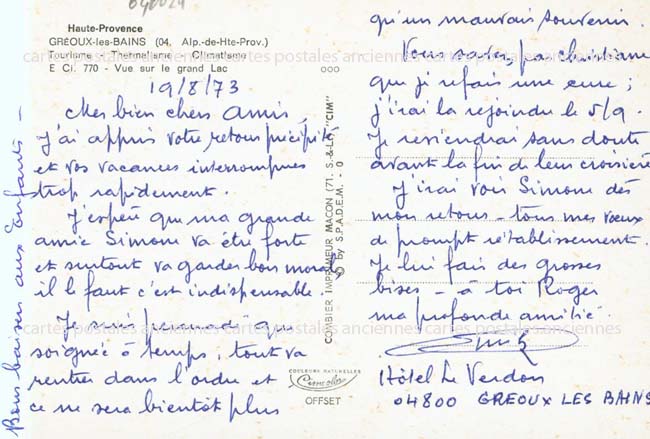 040024
Haute-Provence
GRÉOUX-les-BAINS (04, Alp.-de-Hte-Prov.)
Tourisme - Thermalisme - Climatisme
E Ci. 770 - Vue sur le grand Lac
000
19/8/73
Mes bien chers amis,
J'ai appris votre retour précipité
et vos vacances interrompues
trop rapidement.
J'espère que ma grande
amie Simone va être forte
et surtout va garder bon moral,
il le faut c'est indispensable.
Je suis persuadé que
soignée à temps, tout va
rentrer dans l'ordre et
ce ne sera bientôt plus
qu'un mauvais souvenir.
Vous savez par Christiane
que je refais une cure ;
j'irai la rejoindre le 5/9.
Je reviendrai sans doute
avant la fin de leur croisière
J'irai voir Simone dès
mon retour - tous mes vœux
de prompt rétablissement.
Je lui fais des grosses
bises - à toi Roger
ma profonde amitié.
Hôtel Le Verdon
04800 GREOUX LES BAINS
Bons baisers aux Enfants -
COMBIER IMPRIMEUR MACON (71, S.-&-L.) "CIM"
© by S.P.A.D.E.M. - 0
COULEURS NATURELLES
Cimcolor
OFFSET
cartes postales anciennes cartes postales anciennes cartes postales anciennes
cartes postales anciennes cartes postales anciennes cartes postales anciennes